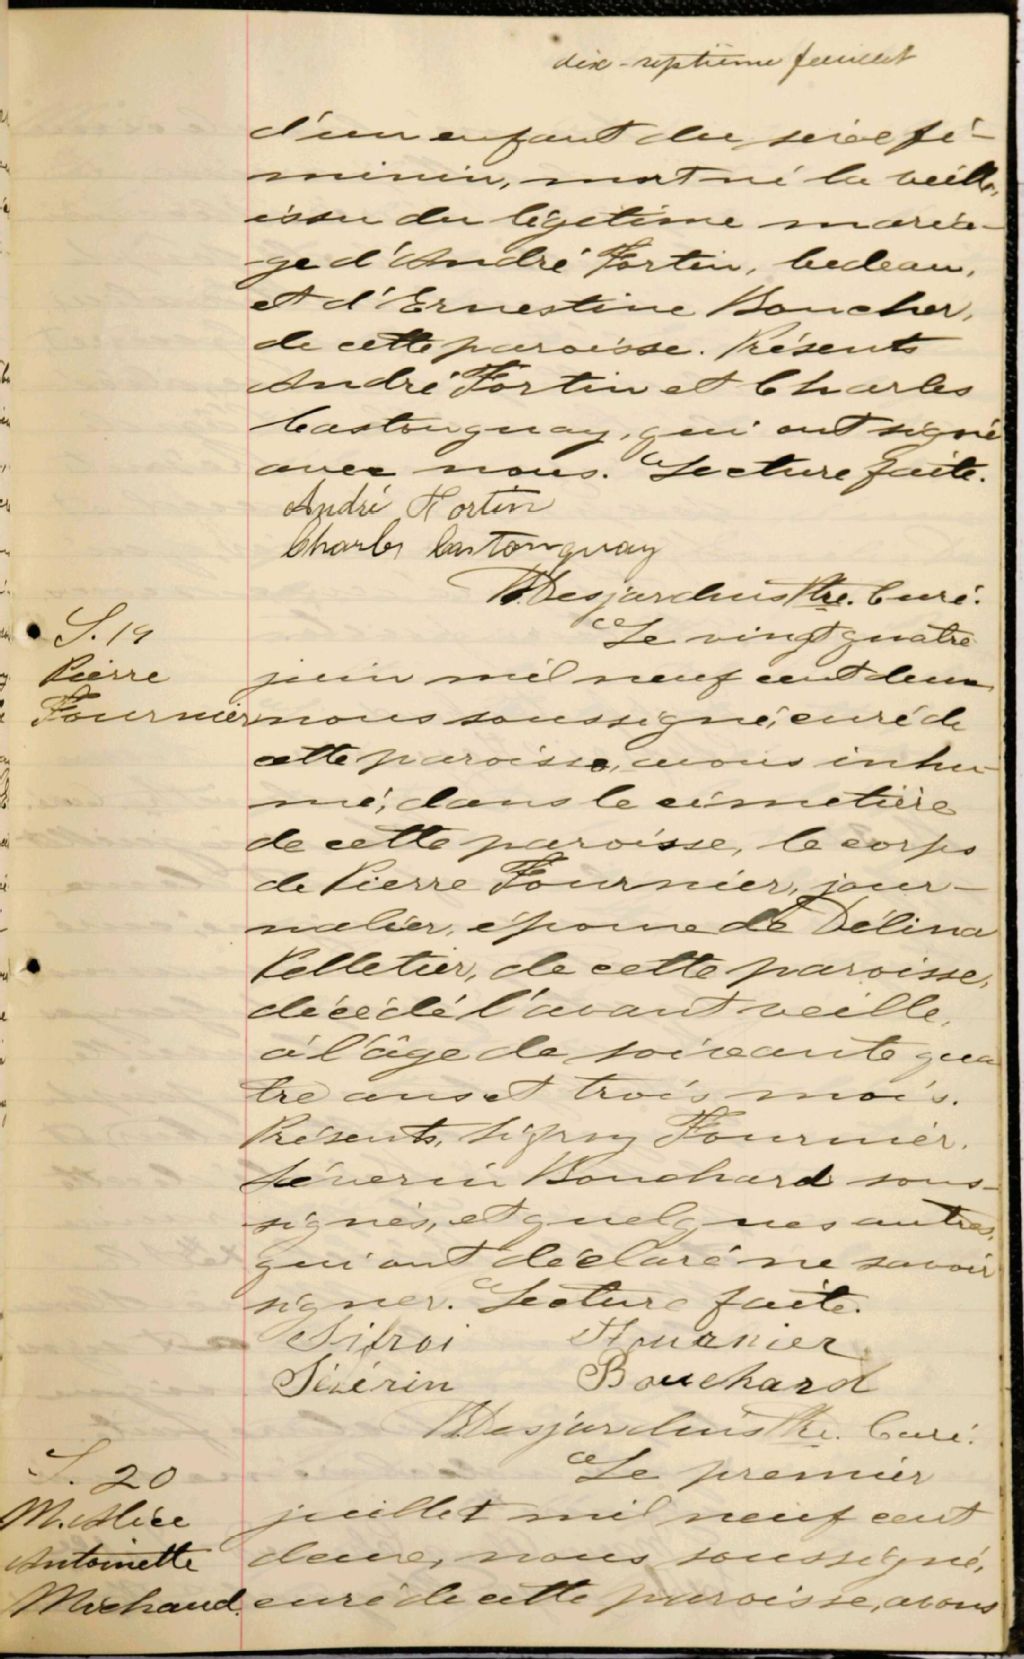 dix-septième feuillet
d'un enfant du sexe fé-
minin, mort né la veille,
issu du légitime maria-
ge d'André Fortin, bedeau,
et d'Ernestine Boucher,
de cette paroisse. Présents
André Fortin et Charles
Castonguay, qui ont signé
avec nous. Lecture faite.
André Fortin
Charles Castonguay
Desjardins Ptre. Curé.
S. 19
Pierre
Fournier
Le vingt quatre
juin mil neuf cent deux
nous soussigné, curé de
cette paroisse, avons inhu-
mé, dans le cimetière
de cette paroisse, le corps
de Pierre Fournier, jour-
nalier, époux de Délina
Pelletier, de cette paroisse,
décédé l'avant veille,
à l'âge de soixante qua
tre ans et trois mois.
Présents, Fournier,
Séverin Bouchard sous-
signés, et quelques autres,
qui ont déclaré ne savoir
signer. Lecture faite.
Sifroi Fournier
Sévérin Bouchard
Desjardins Ptre. Curé.
S. 20
M. Alice
Antoinette
Michaud.
Le premier
juillet mil neuf cent
deux, nous soussigné,
curé de cette paroisse, avons